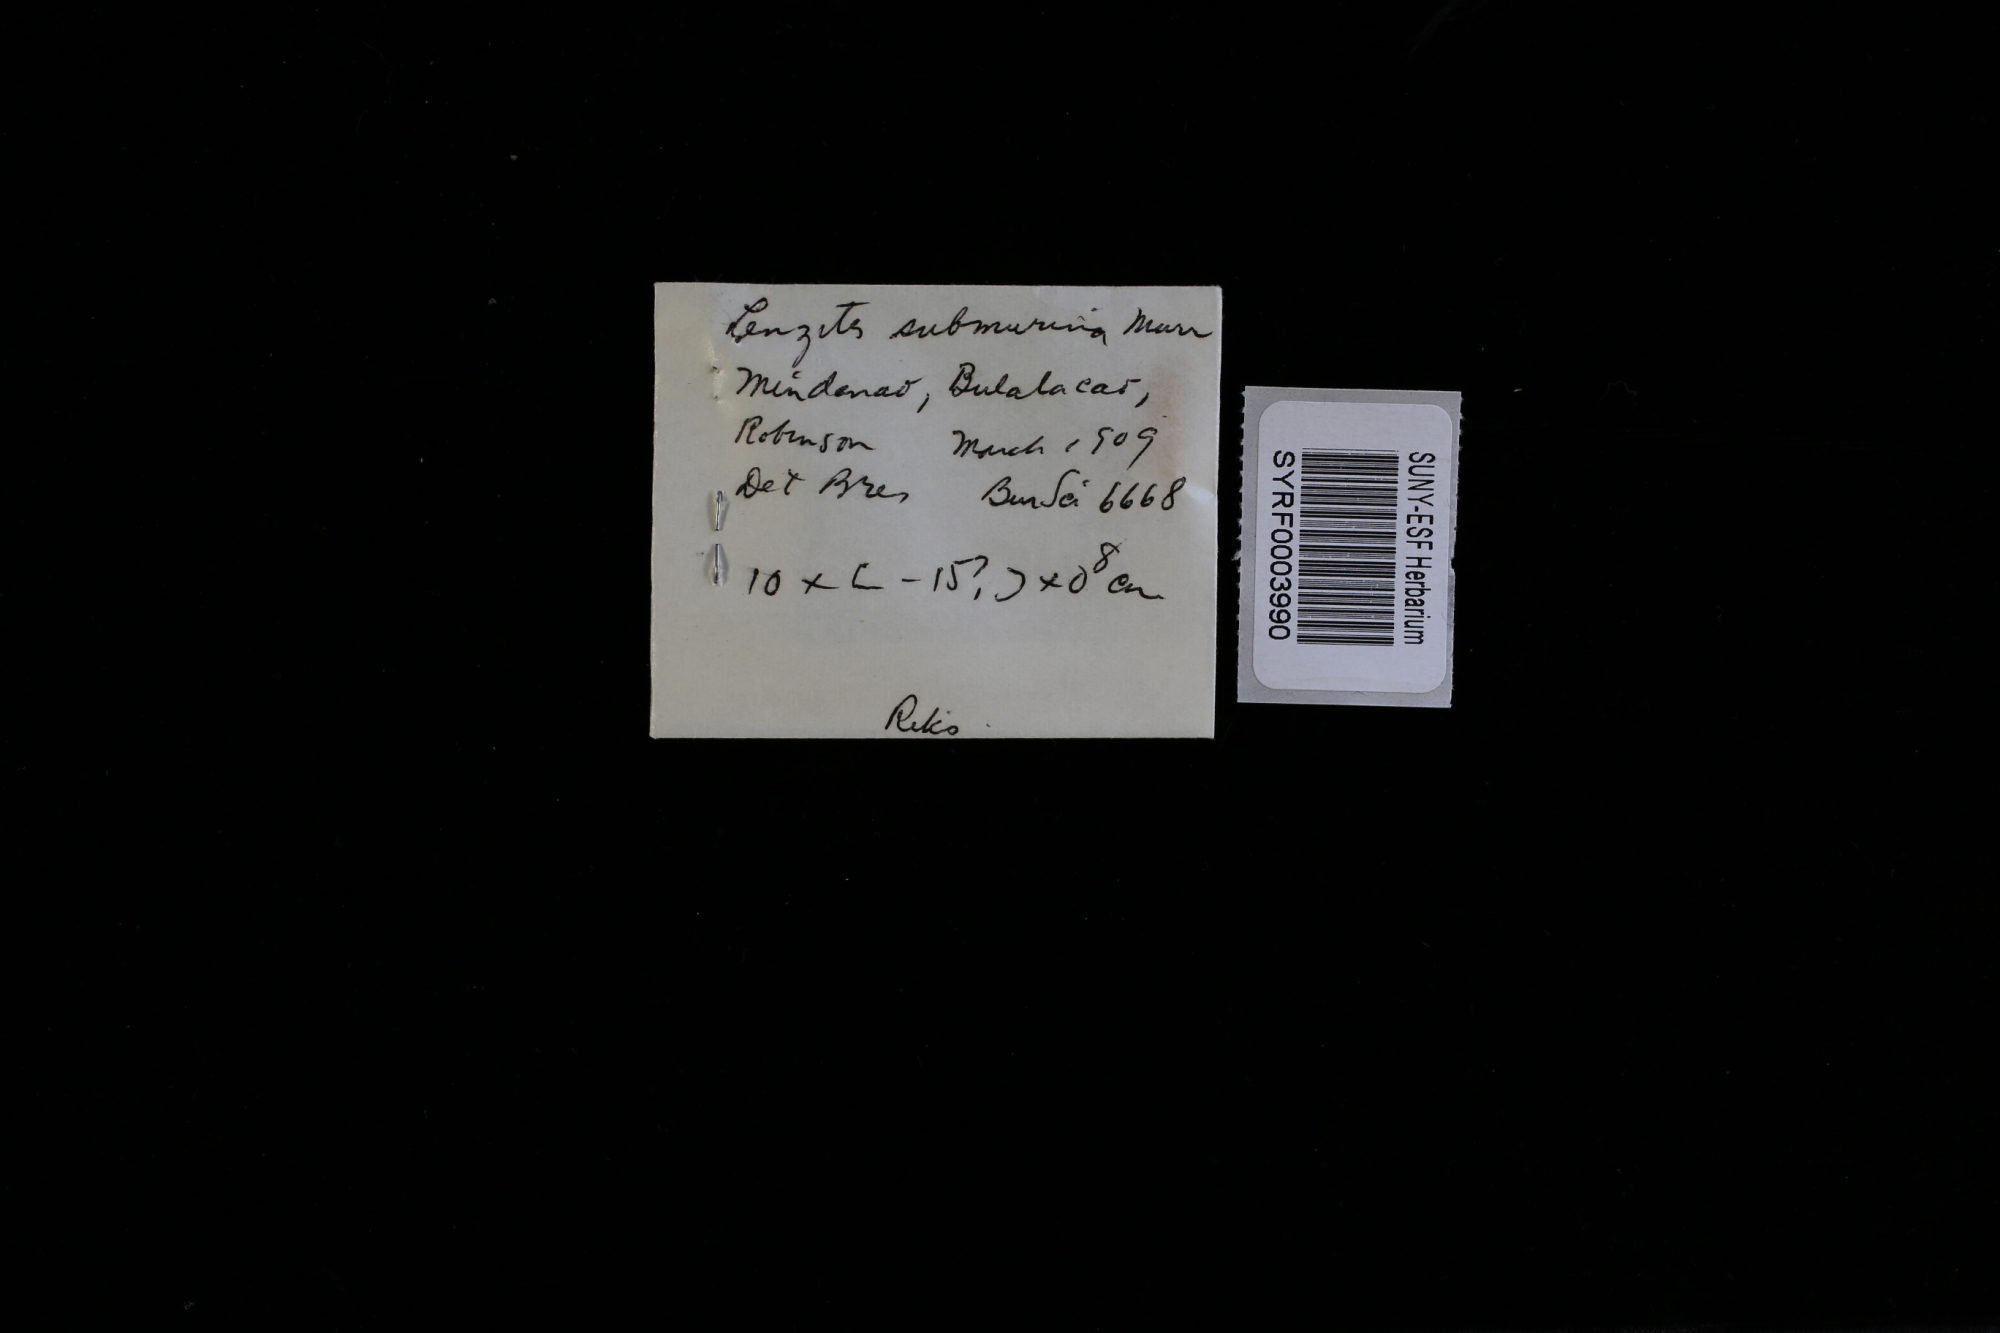 Lenzites submurina Murr
Mindanao, Bulalacao,
Robinson March 1909
Det Bres Bur Sci 6668
10 × [ - 15? ] × 0⁸ cm
Reko
SUNY-ESF Herbarium
SYRF0003990